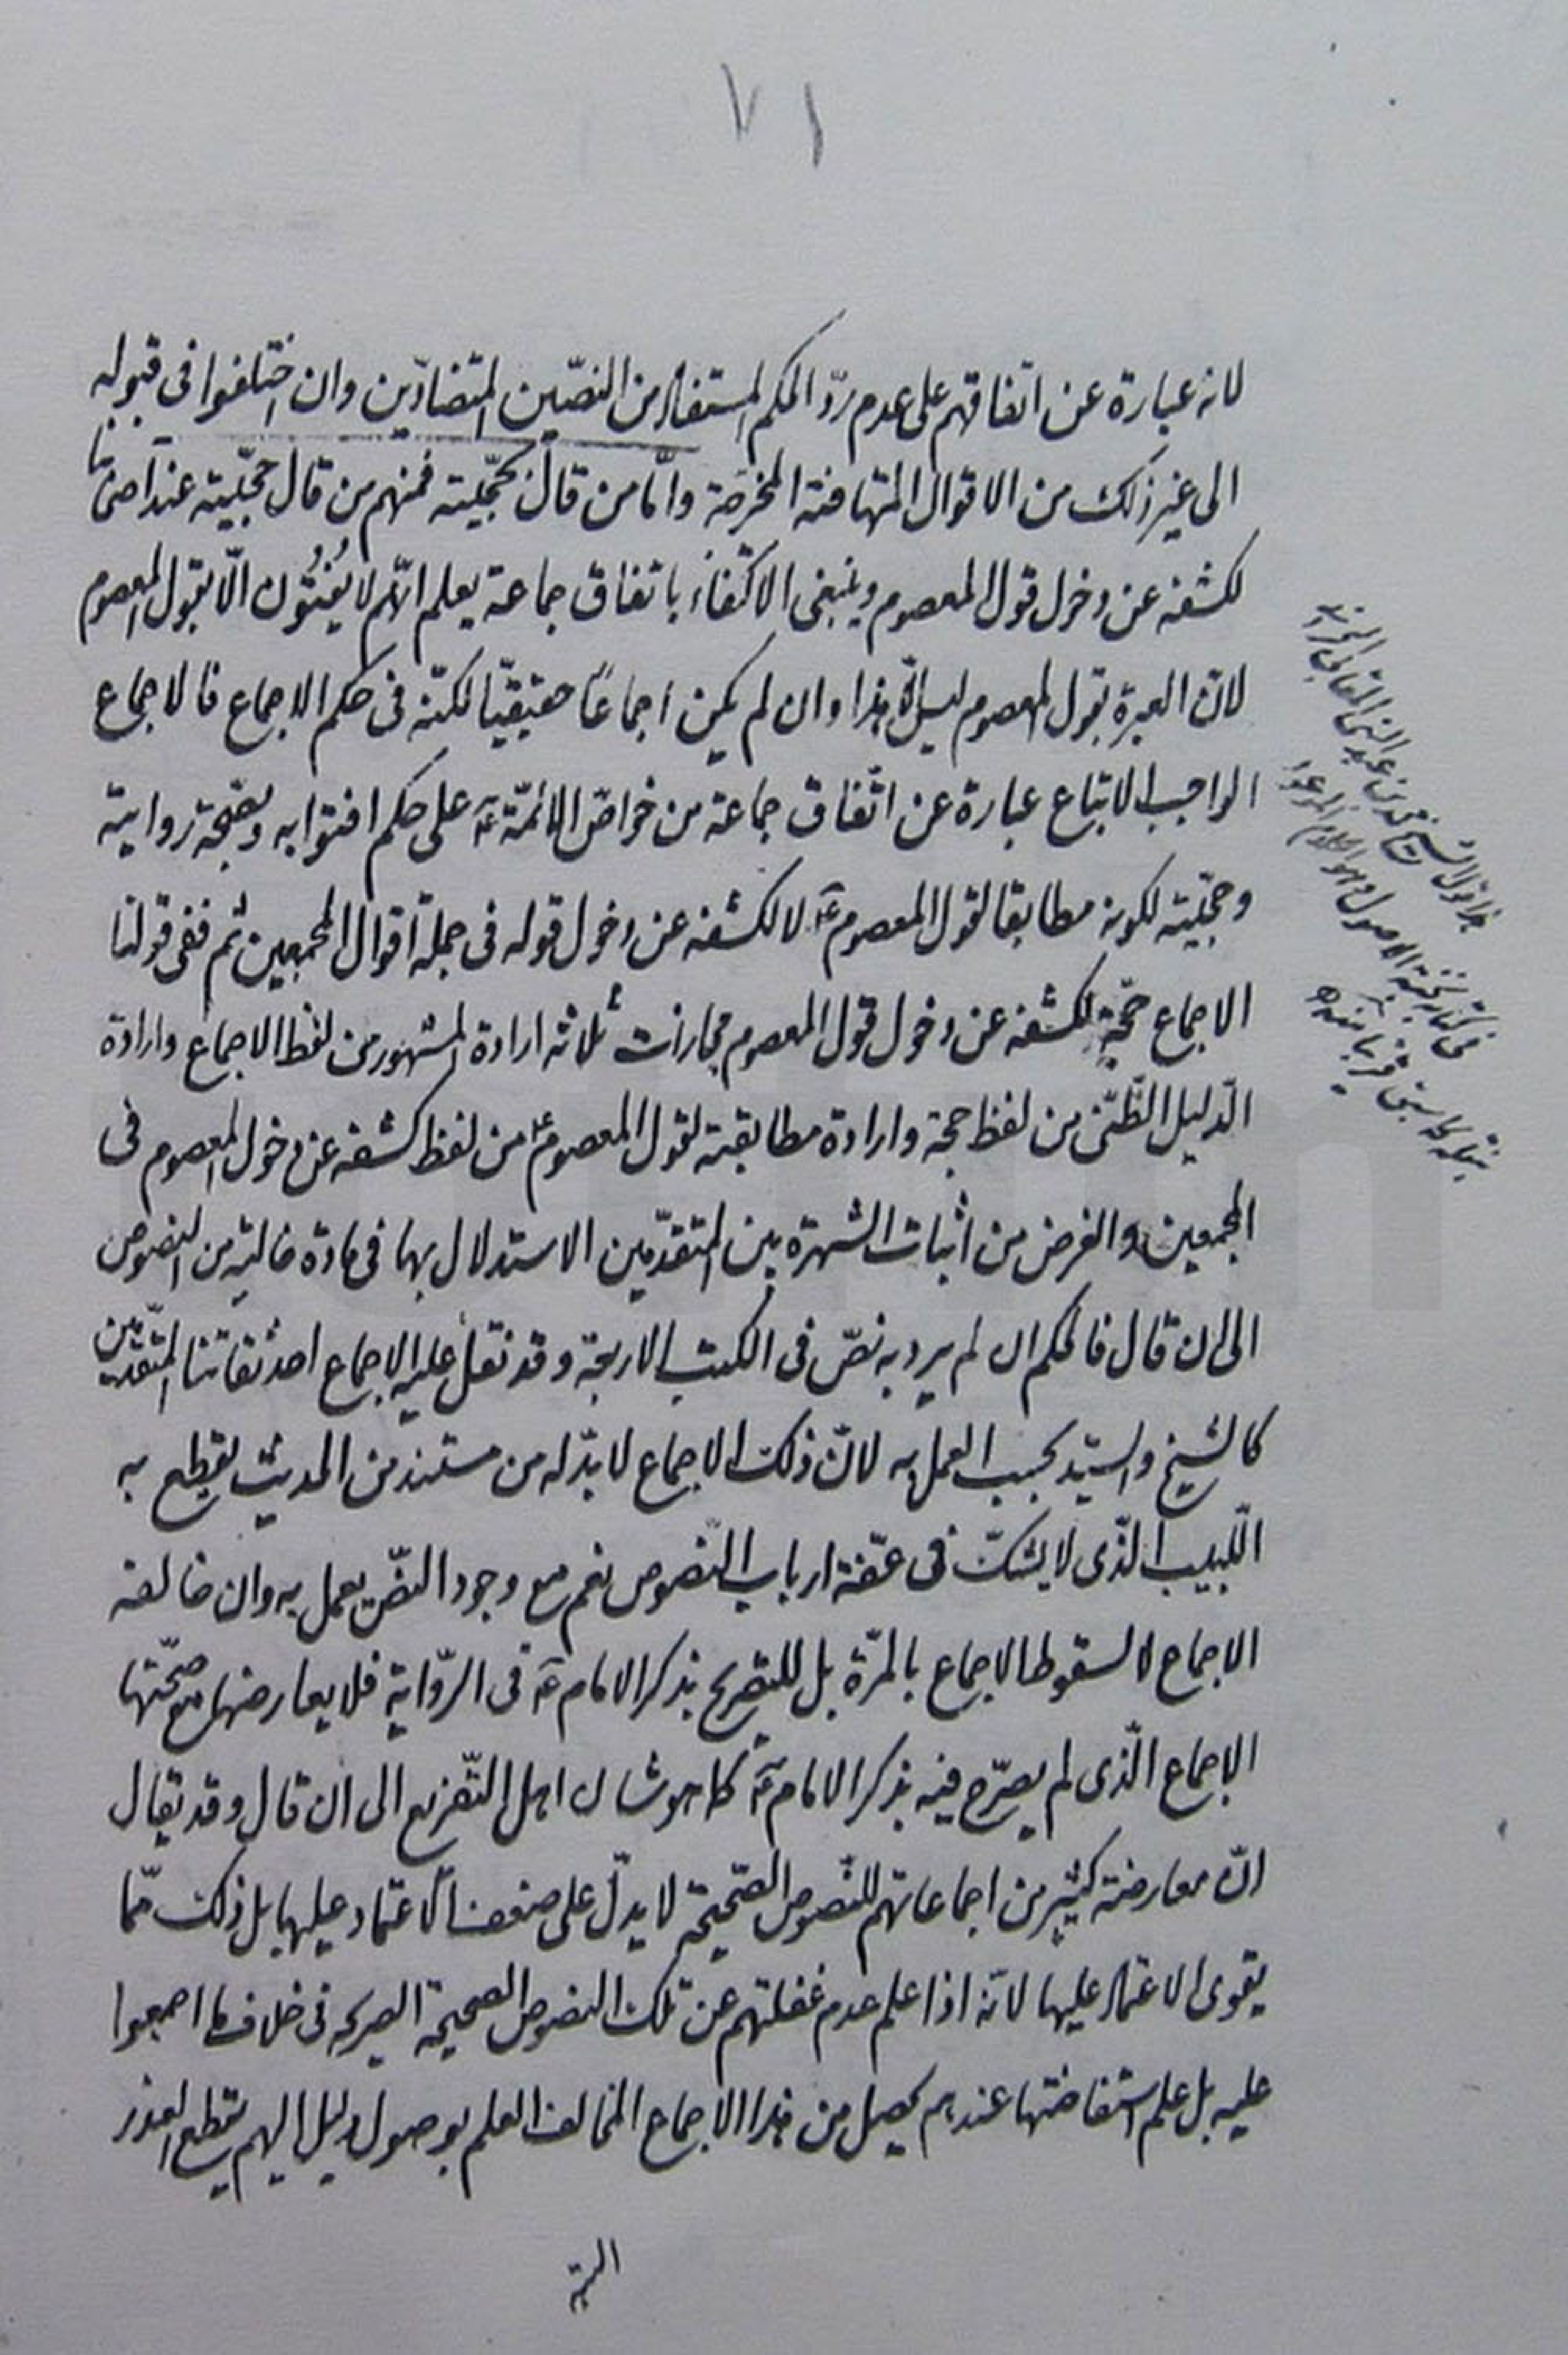 ٧١
لانه عبارة عن اتّفاقهم على عدم ردّ الحكم المستفاد من النصّين المتضادّين وان اختلفوا فى قبوله
الى غير ذلك من الاقوال المتهافتة المخرصة وامّا من قال بحجّيته فمنهم من قال حجّيته عند اصحابنا
لكشفه عن دخول قول المعصوم وينبغى الاكتفاء باتفاق جماعة يعلم انّهم لا يُفتُون الّا بقول المعصوم
لانّ العبرة بقول المعصوم ليس الّا هذا وان لم يكن اجماعًا حقيقيّا لكنّه فى حكم الاجماع فالاجماع
الواجب الاتباع عبارة عن اتّفاق جماعة من خواصّ الائمّة ع على حكم افتوا به وبصحّة روايته
وحجّيته لكونه مطابقا لقول المعصوم ع لا لكشفه عن دخول قوله فى جملة اقوال المجمعين ثم ففى قولنا
الاجماع حجّة لكشفه عن دخول قول المعصوم مجازات ثلاثة ارادة المشهور من لفظ الاجماع وارادة
الدّليل الظّنّى من لفظ حجة وارادة مطابقته لقول المعصوم ع من لفظ كشفه عن دخول المعصوم فى
المجمعين والغرض من اثبات الشهرة بين المتقدّمين الاستدلال بها فى مادة خالية من النصوص
الى ان قال فالحكم ان لم يرد به نصّ فى الكتب الاربعة وقد نقل عليه الاجماع احد ثقاتنا المتقدّمين
كالشيخ والسيّد يجب العمل به لانّ ذلك الاجماع لا بدّ له من مستند من الحديث يقطع به
اللّبيب الّذى لا يشكّ فى عفّة ارباب النّصوص نعم مع وجود النصّ يعمل به وان خالفه
الاجماع لا لسقوط الاجماع بالمرّة بل للتصريح بذكر الامام ع فى الرّواية فلا يعارضها مع صحّتها
الاجماع الّذى لم يصرّح فيه بذكر الامام ع كما هو شان اهل التّفريع الى ان قال وقد يقال
انّ معارضة كثير من اجماعاتهم للنّصوص الصّحيحة لا يدلّ على ضعف الاعتماد عليها بل ذلك ممّا
يقوى الاعتماد عليها لانّه اذا علم عدم غفلتهم عن تلك النصوص الصحيحة الصريحه فى خلاف ما اجمعوا
عليه بل علم استفاضتها عندهم يحصل من هذا الاجماع المخالف العلم بوصول دليل اليهم يقطع العذر
البتة
هذا قول الشيخ محمد بن عبد النبى
فى كتابه الاصول وهو